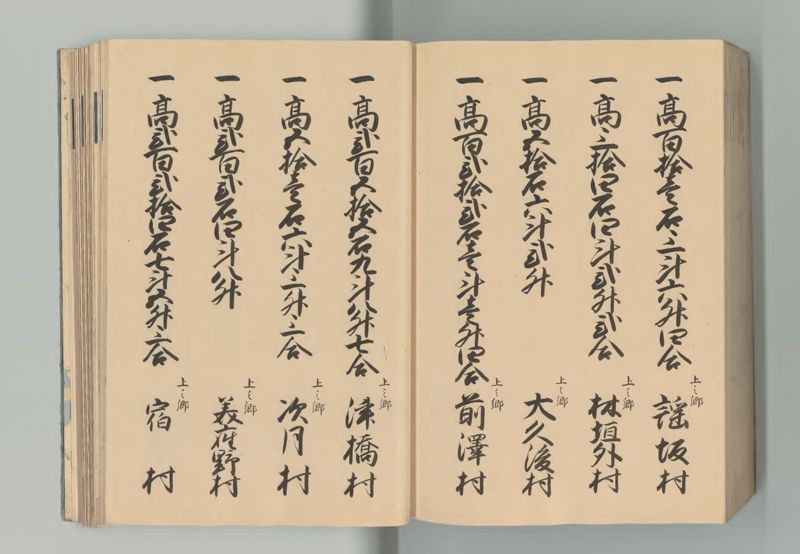 一 高百拾壱石三斗六升四合 上之郷 謡坂村
一 高三拾四石四斗弐升弐合 上之郷 林垣外村
一 高五拾石六斗弐升 上之郷 大久後村
一 高百弐拾弐石壱斗壱升四合 上之郷 前澤村
一 高弐百五拾五石九斗八升七合 上之郷 津橋村
一 高五拾壱石六斗三升三合 上之郷 次月村
一 高弐百弐石四斗八升 上之郷 美佐野村
一 高弐百弐拾四石七斗五升三合 上之郷 宿村